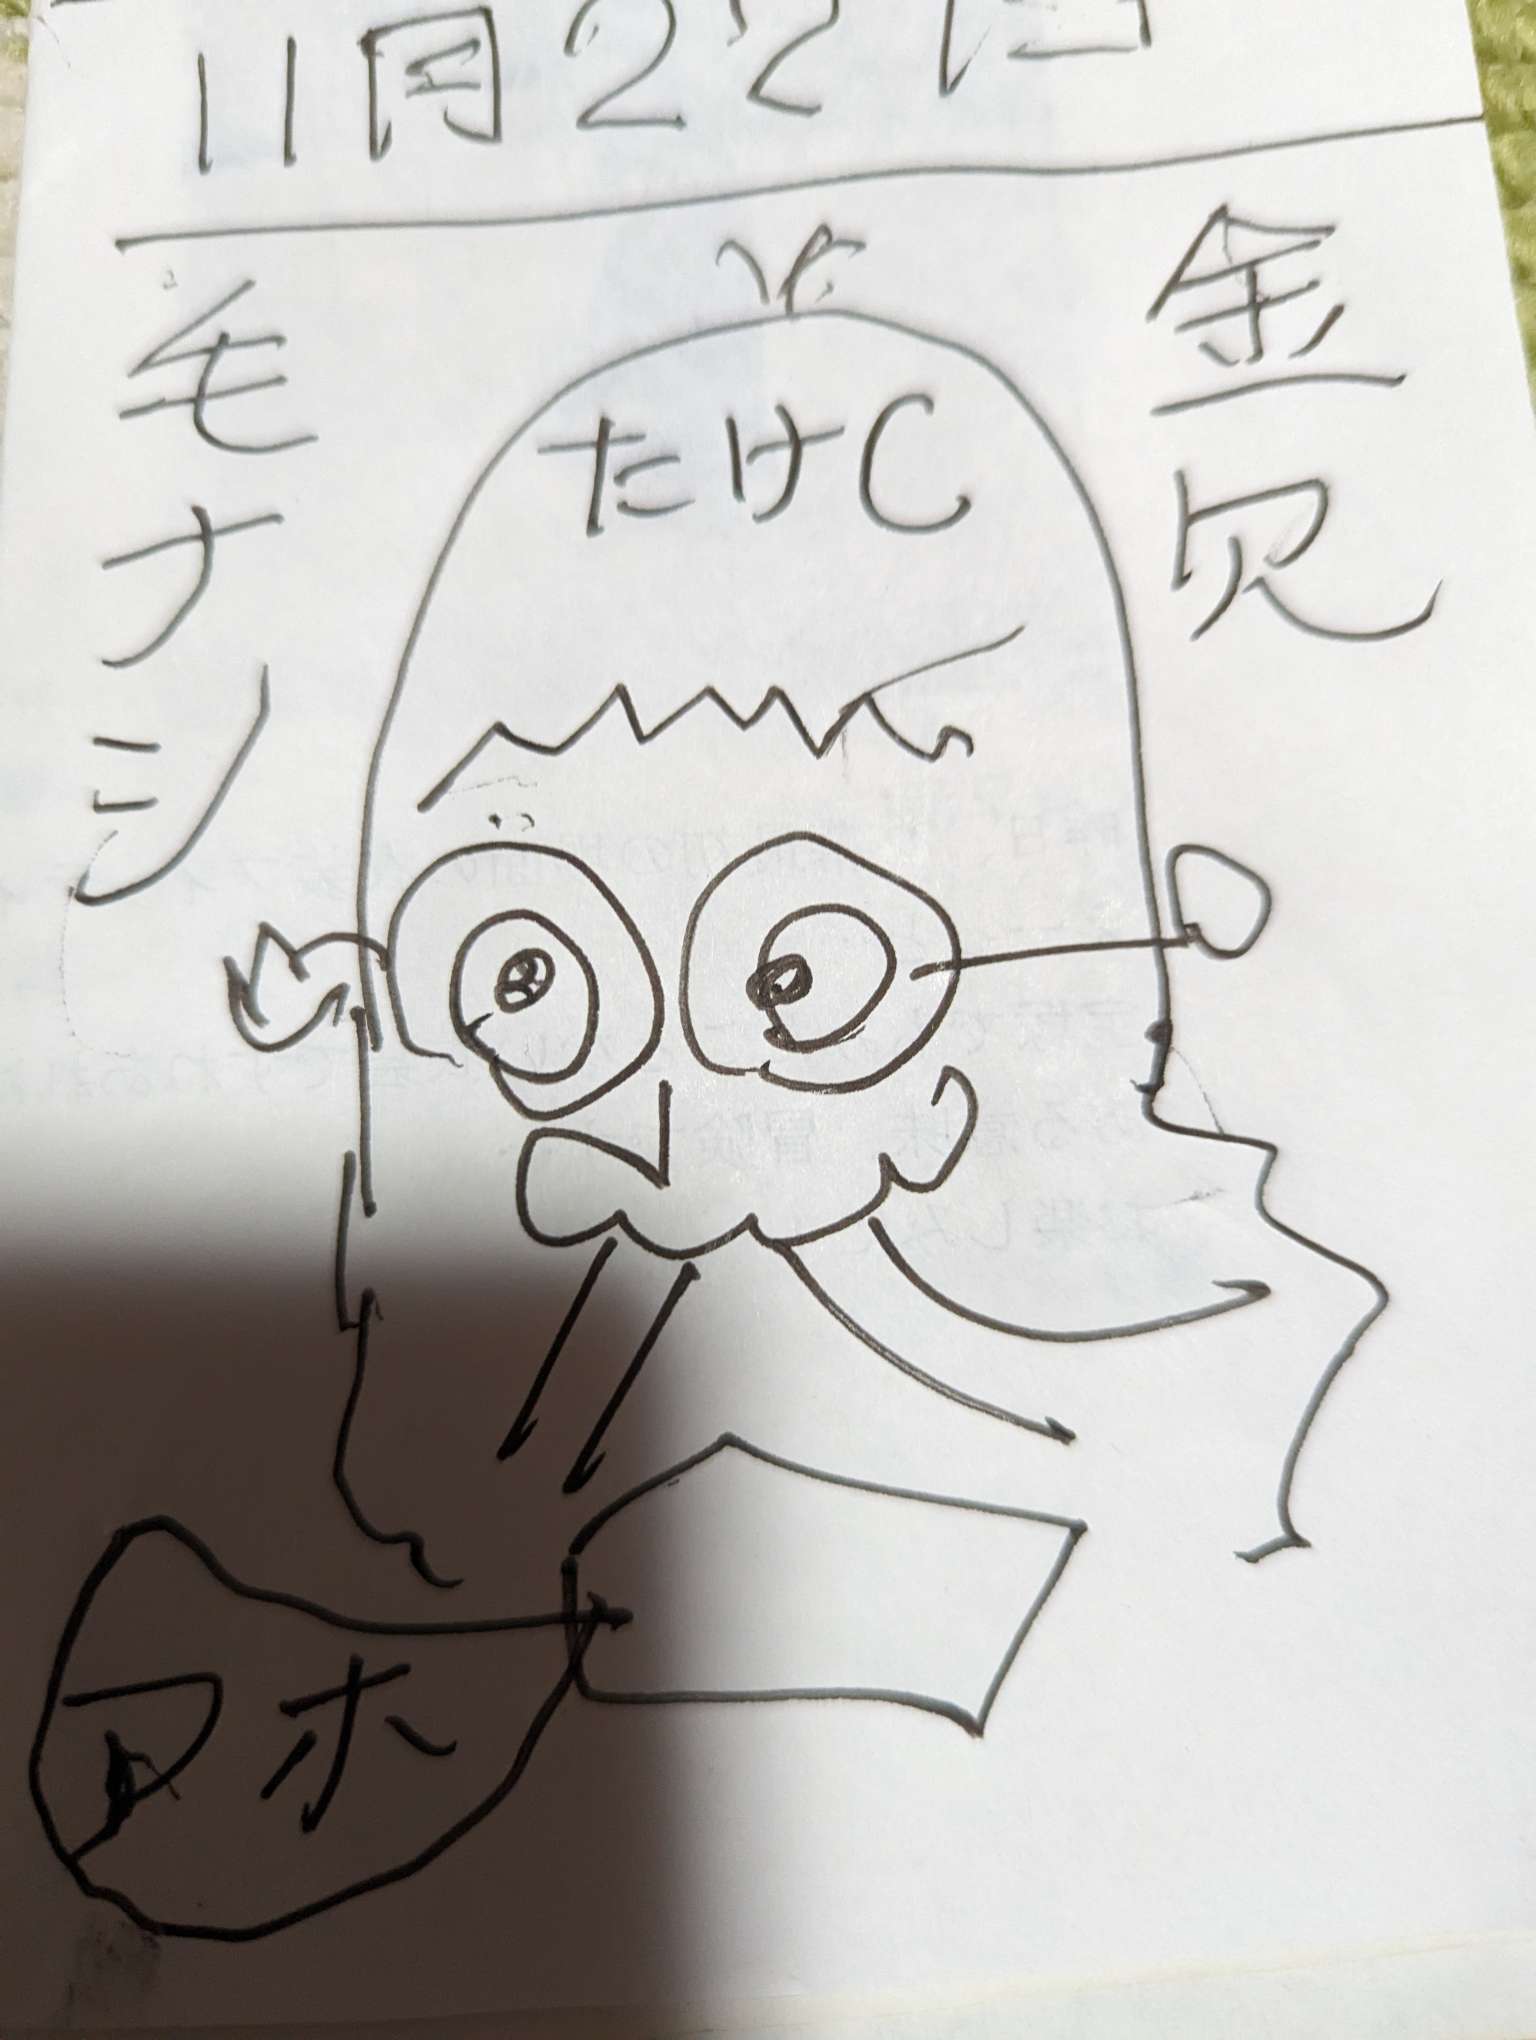 11月22日
金欠
毛ナシ
たけし
アホ